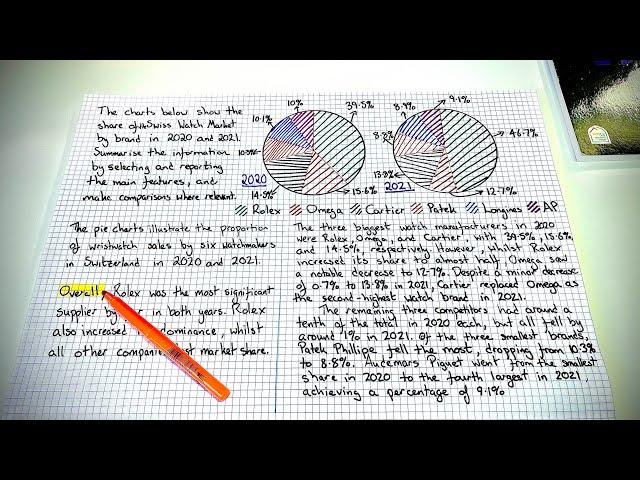 The charts below show the
share of the Swiss Watch Market
by brand in 2020 and 2021.
Summarise the information
by selecting and reporting
the main features, and
make comparisons where relevant.
10% 39.5%
10.1%
10.3%
2020
14.5% 15.6%
9.1%
8.9%
46.7%
8.8%
13.8%
2021
12.7%
Rolex Omega Cartier Patek Longines AP
The pie charts illustrate the proportion
of wristwatch sales by six watchmakers
in Switzerland in 2020 and 2021.
Overall, Rolex was the most significant
supplier by in both years. Rolex
also increased dominance, whilst
all other market share.
The three biggest watch manufacturers in 2020
were Rolex, Omega, and Cartier, with 39.5%, 15.6%,
and 14.5%, respectively. However, whilst Rolex
increased its share to almost half, Omega saw
a notable decrease to 12.7%. Despite a minor decrease
of 0.7% to 13.8% in 2021, Cartier replaced Omega as
the second-highest watch brand in 2021.
The remaining three competitors had around a
tenth of the total in 2020 each, but all fell by
around 1% in 2021. Of the three smallest brands,
Patek Phillipe fell the most, dropping from 10.3%
to 8.8%. Audemars Piguet went from the smallest
share in 2020 to the fourth largest in 2021,
achieving a percentage of 9.1%